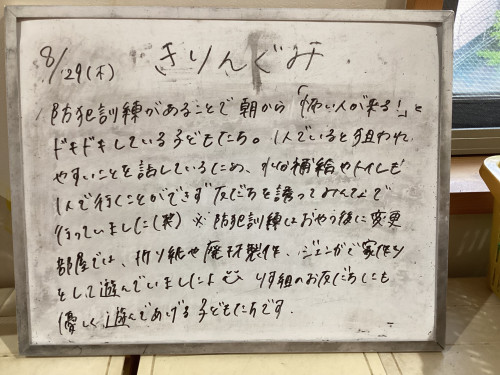 8/29(木) きりんぐみ
防犯訓練があることで朝から「怖い人が来る!」と
ドキドキしている子どもたち。1人でいると狙われ
やすいことを話しているため、水分補給やトイレも
1人で行くことができず友だちを誘ってみんなで
行っていました(笑) ※防犯訓練はおやつ後に変更
部屋では、折り紙や廃材製作、ジェンガで家作り
をして遊んでいましたよ りす組のお友だちにも
優しく遊んであげる子どもたちです.